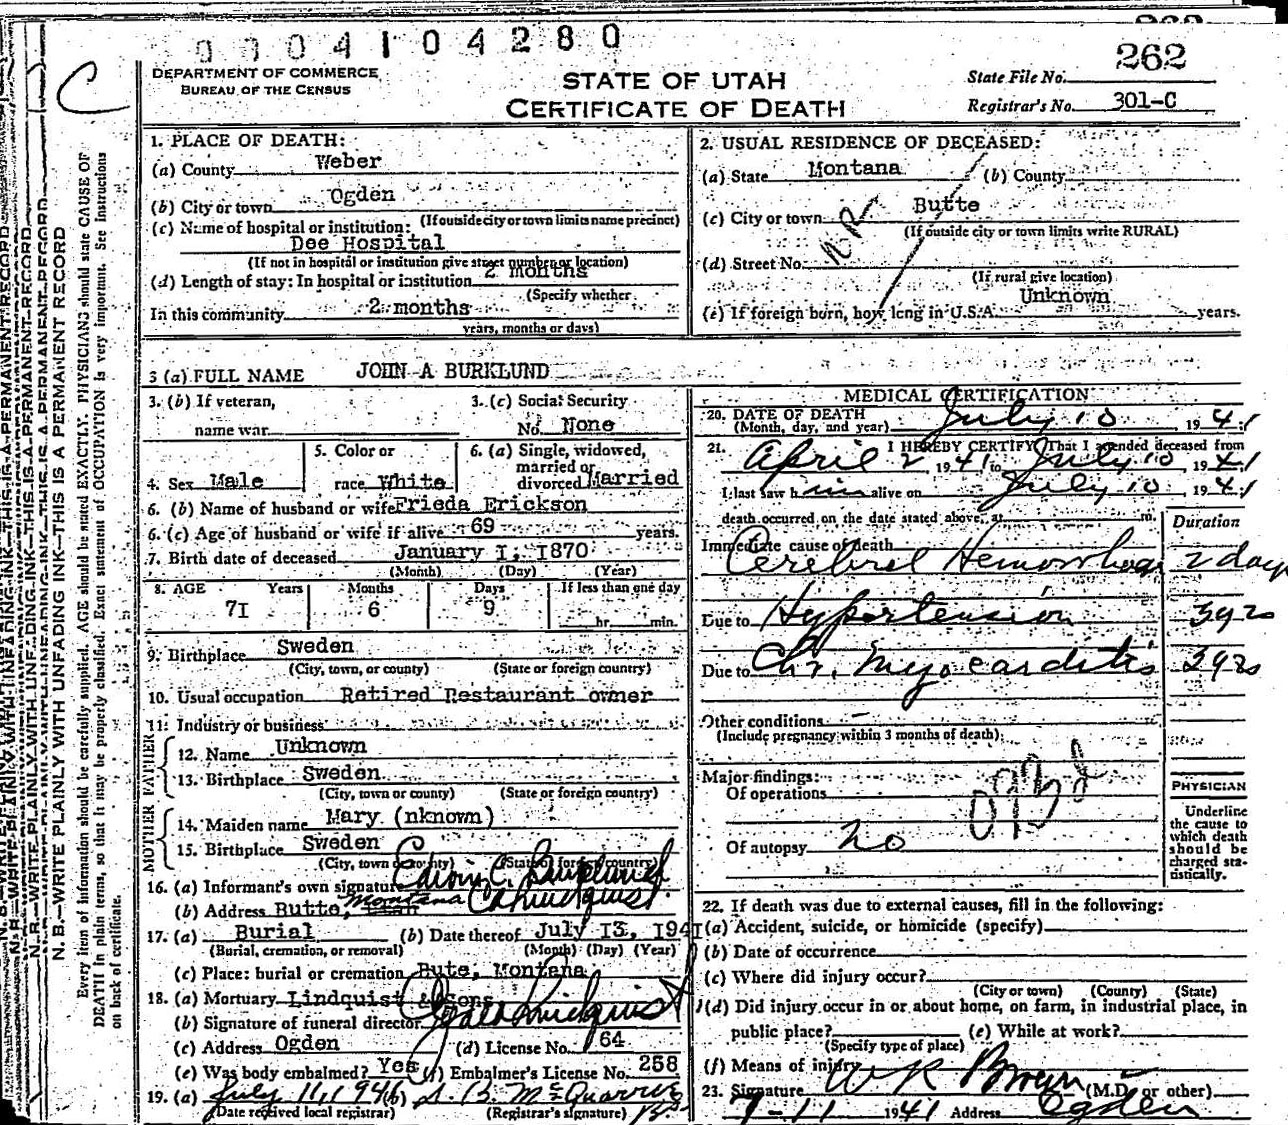 0004104280
262
DEPARTMENT OF COMMERCE
BUREAU OF THE CENSUS
STATE OF UTAH
CERTIFICATE OF DEATH
State File No. 262
Registrar's No. 301-C
C
N. B.—WRITE PLAINLY WITH UNFADING INK—THIS IS A PERMANENT RECORD
Every item of information should be carefully supplied. AGE should be stated EXACTLY. PHYSICIANS should state CAUSE OF
DEATH in plain terms, so that it may be properly classified. Exact statement of OCCUPATION is very important. See instructions
on back of certificate.
1. PLACE OF DEATH:
(a) County Weber
(b) City or town Ogden
(If outside city or town limits name precinct)
(c) Name of hospital or institution:
Dee Hospital
(If not in hospital or institution give street number or location)
(d) Length of stay: In hospital or institution 2 months
(Specify whether
In this community 2 months
years, months or days)
2. USUAL RESIDENCE OF DECEASED:
(a) State Montana (b) County
(c) City or town Butte
(If outside city or town limits write RURAL)
NR
(d) Street No.
(If rural give location)
(e) If foreign born, how long in U.S.A. Unknown years.
3 (a) FULL NAME JOHN A BURKLUND
3. (b) If veteran,
name war
3. (c) Social Security
No. None
4. Sex Male
5. Color or
race White
6. (a) Single, widowed,
married or
divorced Married
6. (b) Name of husband or wife Frieda Erickson
6. (c) Age of husband or wife if alive 69 years.
7. Birth date of deceased January I, I870
(Month) (Day) (Year)
8. AGE Years Months Days If less than one day
7I 6 9 hr. min.
9. Birthplace Sweden
(City, town, or county) (State or foreign country)
10. Usual occupation Retired Restaurant owner
11. Industry or business
FATHER
12. Name Unknown
13. Birthplace Sweden
(City, town or county) (State or foreign country)
MOTHER
14. Maiden name Mary (nknown)
15. Birthplace Sweden
(City, town or county) (State or foreign country)
16. (a) Informant's own signature Edwin C. Burklund
(b) Address Butte, Montana
17. (a) Burial (b) Date thereof July I3, I94I
(Burial, cremation, or removal) (Month) (Day) (Year)
(c) Place: burial or cremation Bute, Montana
18. (a) Mortuary Lindquist & Sons
(b) Signature of funeral director
(c) Address Ogden (d) License No. 64
(e) Was body embalmed? Yes (f) Embalmer's License No. 258
19. (a) July 11, 1941 (b)
(Date received local registrar) (Registrar's signature)
MEDICAL CERTIFICATION
20. DATE OF DEATH
(Month, day, and year) July 10, 1941
21. I HEREBY CERTIFY That I attended deceased from
April 2 1941 to July 10 1941
I last saw him alive on July 10, 1941
death occurred on the date stated above, at m.
Duration
Immediate cause of death
Cerebral Hemorrhage 2 days
Due to Hypertension 3yrs
Due to Chr. Myocarditis 3yrs
Other conditions
(Include pregnancy within 3 months of death)
Major findings:
Of operations
Of autopsy no
PHYSICIAN
Underline
the cause to
which death
should be
charged sta-
tistically.
22. If death was due to external causes, fill in the following:
(a) Accident, suicide, or homicide (specify)
(b) Date of occurrence
(c) Where did injury occur?
(City or town) (County) (State)
(d) Did injury occur in or about home, on farm, in industrial place, in
public place? (e) While at work?
(Specify type of place)
(f) Means of injury
23. Signature W R Brown (M.D. or other)
7-11 1941 Address Ogden